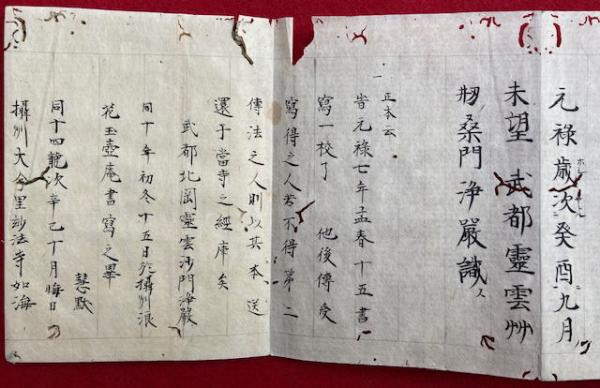 元祿歳次癸酉九月
未望武都靈雲艸
刱桑門淨嚴識
一正本云
旹元祿七年孟春十五書
寫一校了 他後傳受
寫得之人若不得第二
傳法之人則以其本送
還于當寺之經庫矣
武都北岡靈雲沙門淨嚴
同十年初冬十五日於攝州浪
花玉壺庵書寫之畢
慧默
同十四範次辛巳十月晦日
攝州大今里妙法寺如海